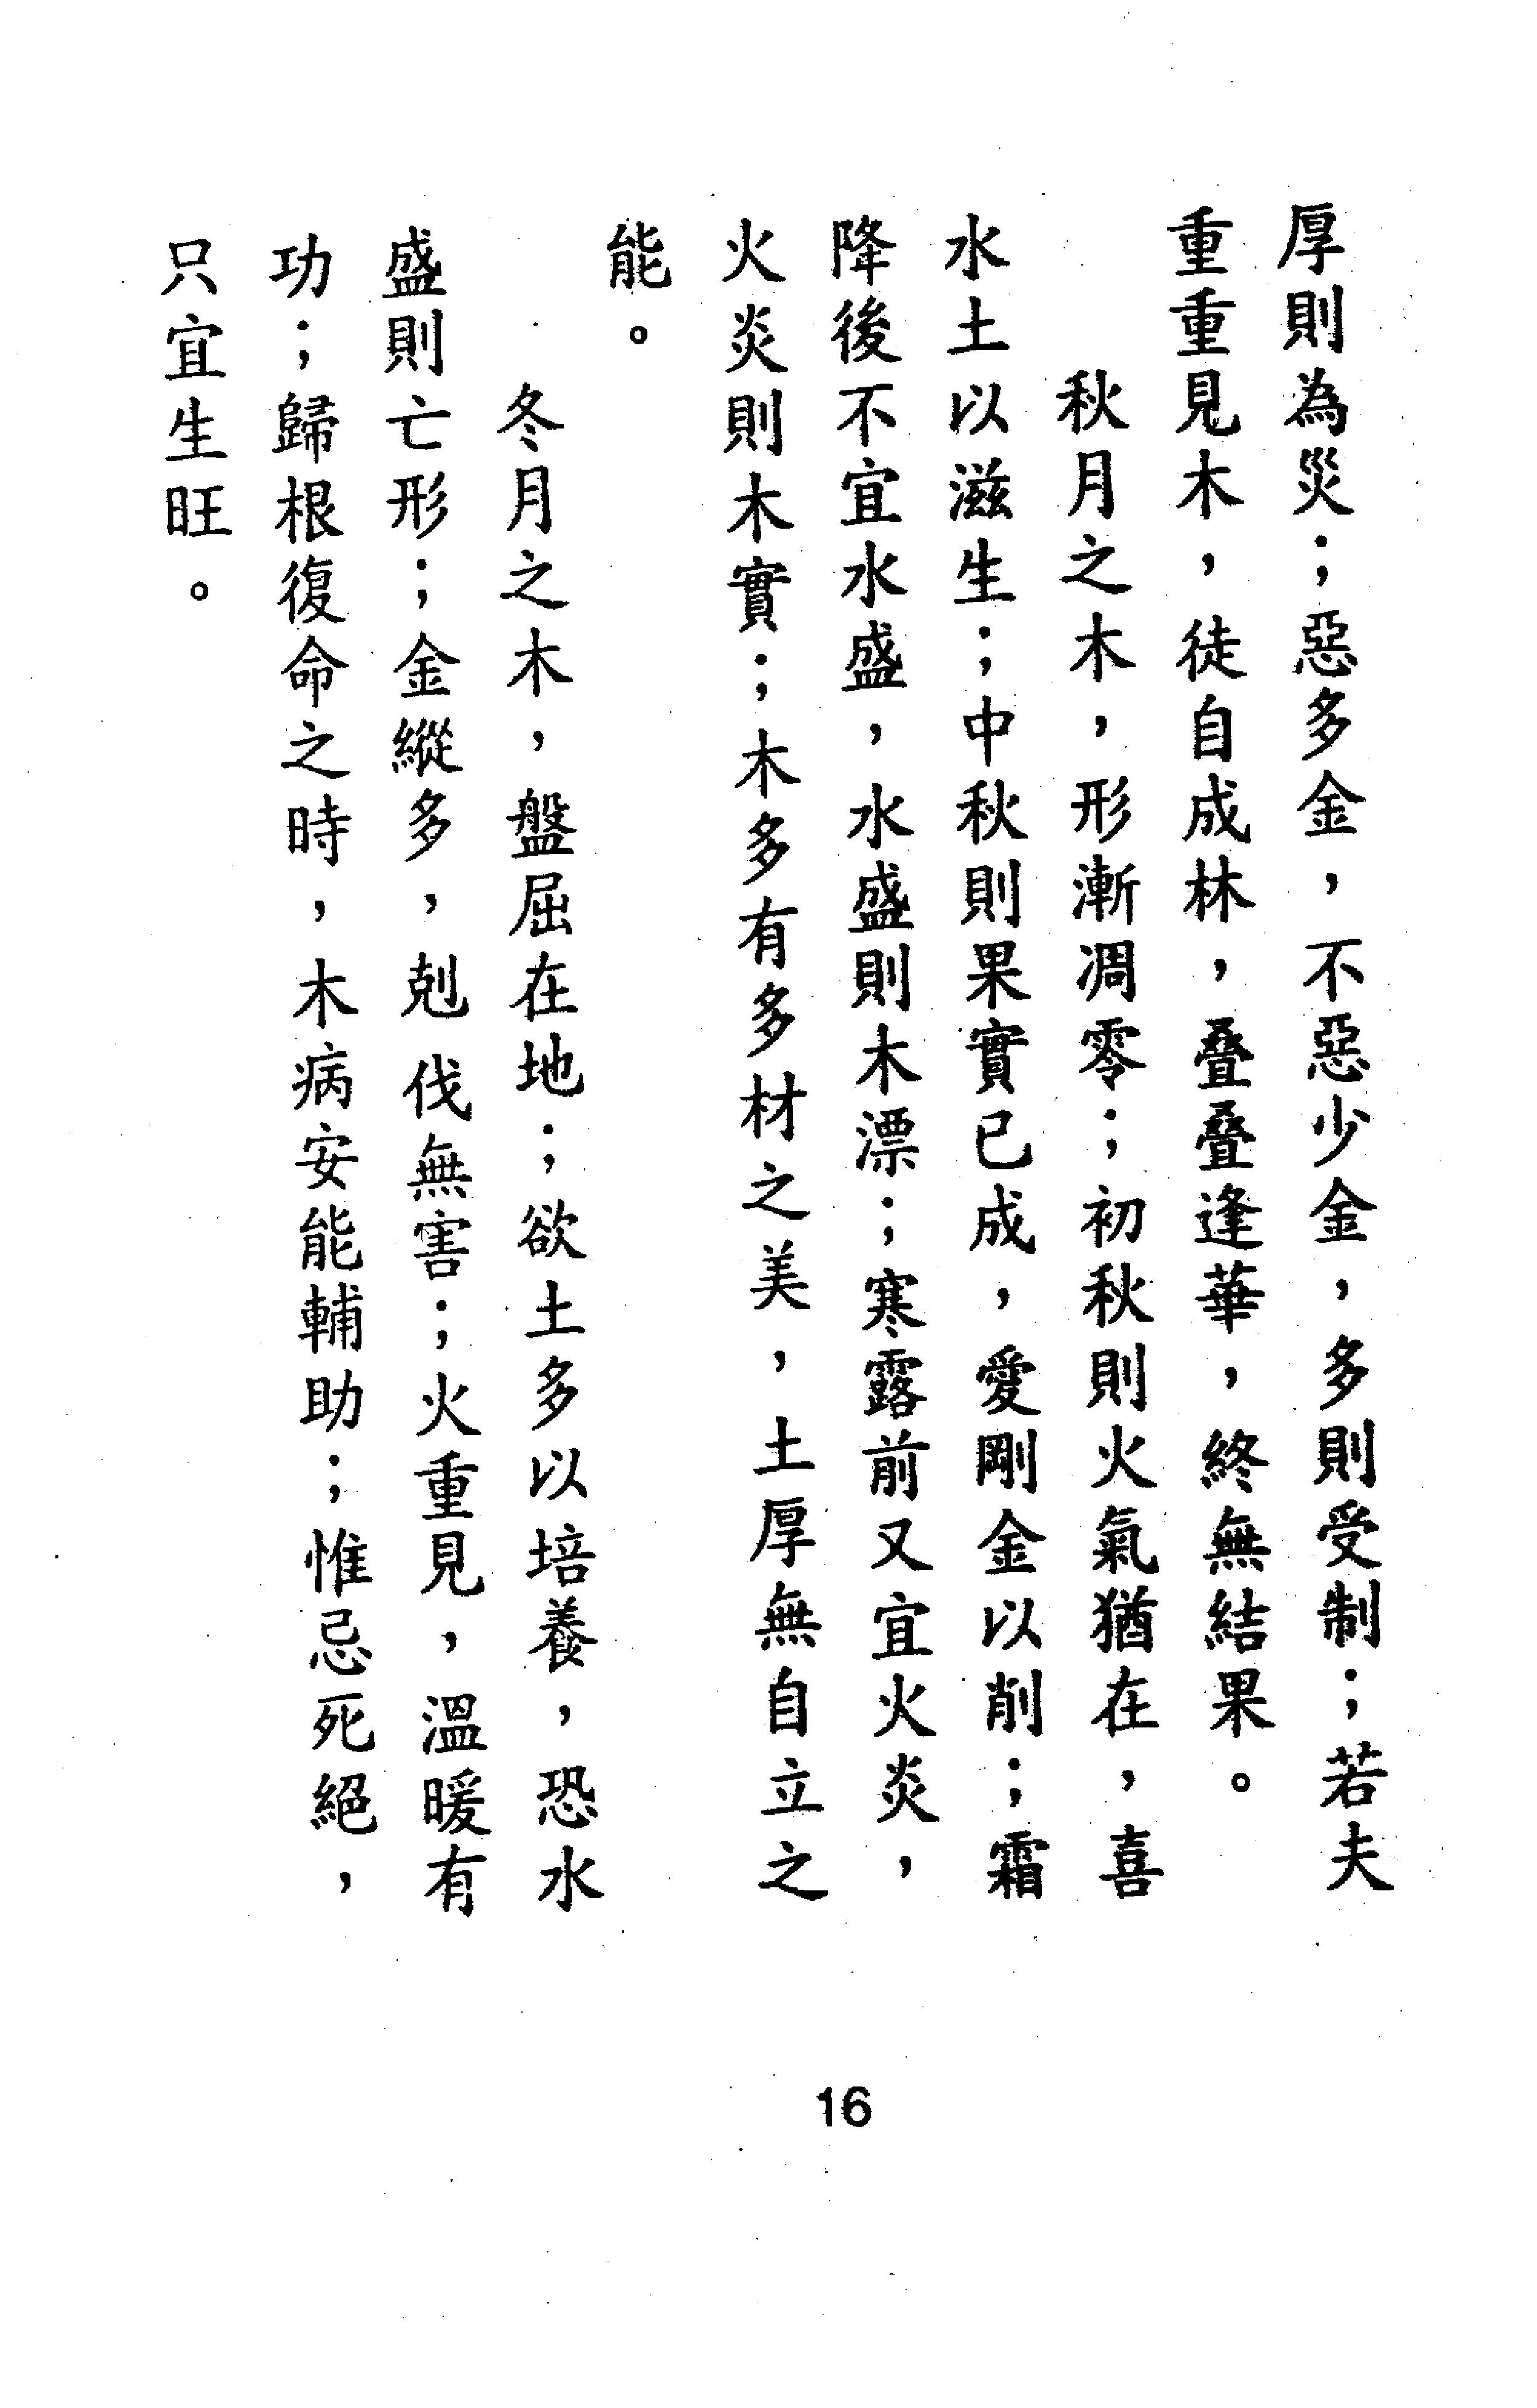 厚則為災；惡多金，不惡少金，多則受制；若夫
重重見木，徒自成林，疊疊逢華，終無結果。
秋月之木，形漸凋零；初秋則火氣猶在，喜
水土以滋生；中秋則果實已成，愛剛金以削；霜
降後不宜水盛，水盛則木漂；寒露前又宜火炎，
火炎則木實；木多有多材之美，土厚無自立之
能。
冬月之木，盤屈在地；欲土多以培養，恐水
盛則亡形；金縱多，剋伐無害；火重見，溫暖有
功；歸根復命之時，木病安能輔助；惟忌死絕，
只宜生旺。
16